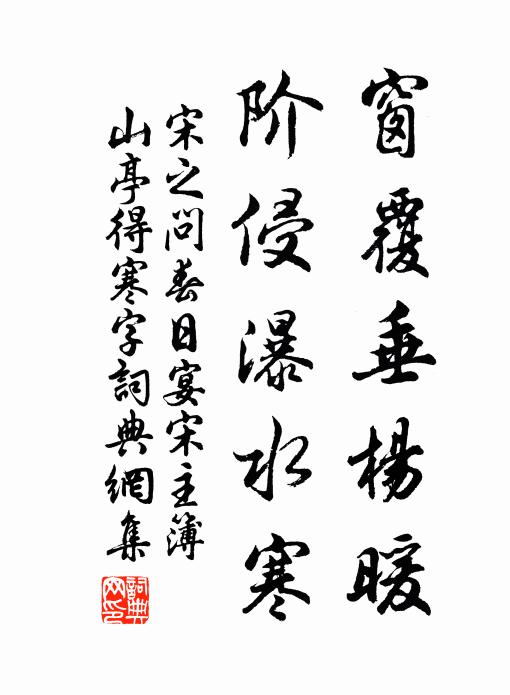 窗覆垂楊暖
阶侵瀑水寒
宋之问春日宴宋主簿
山亭得寒字詞典網集
詞典網印